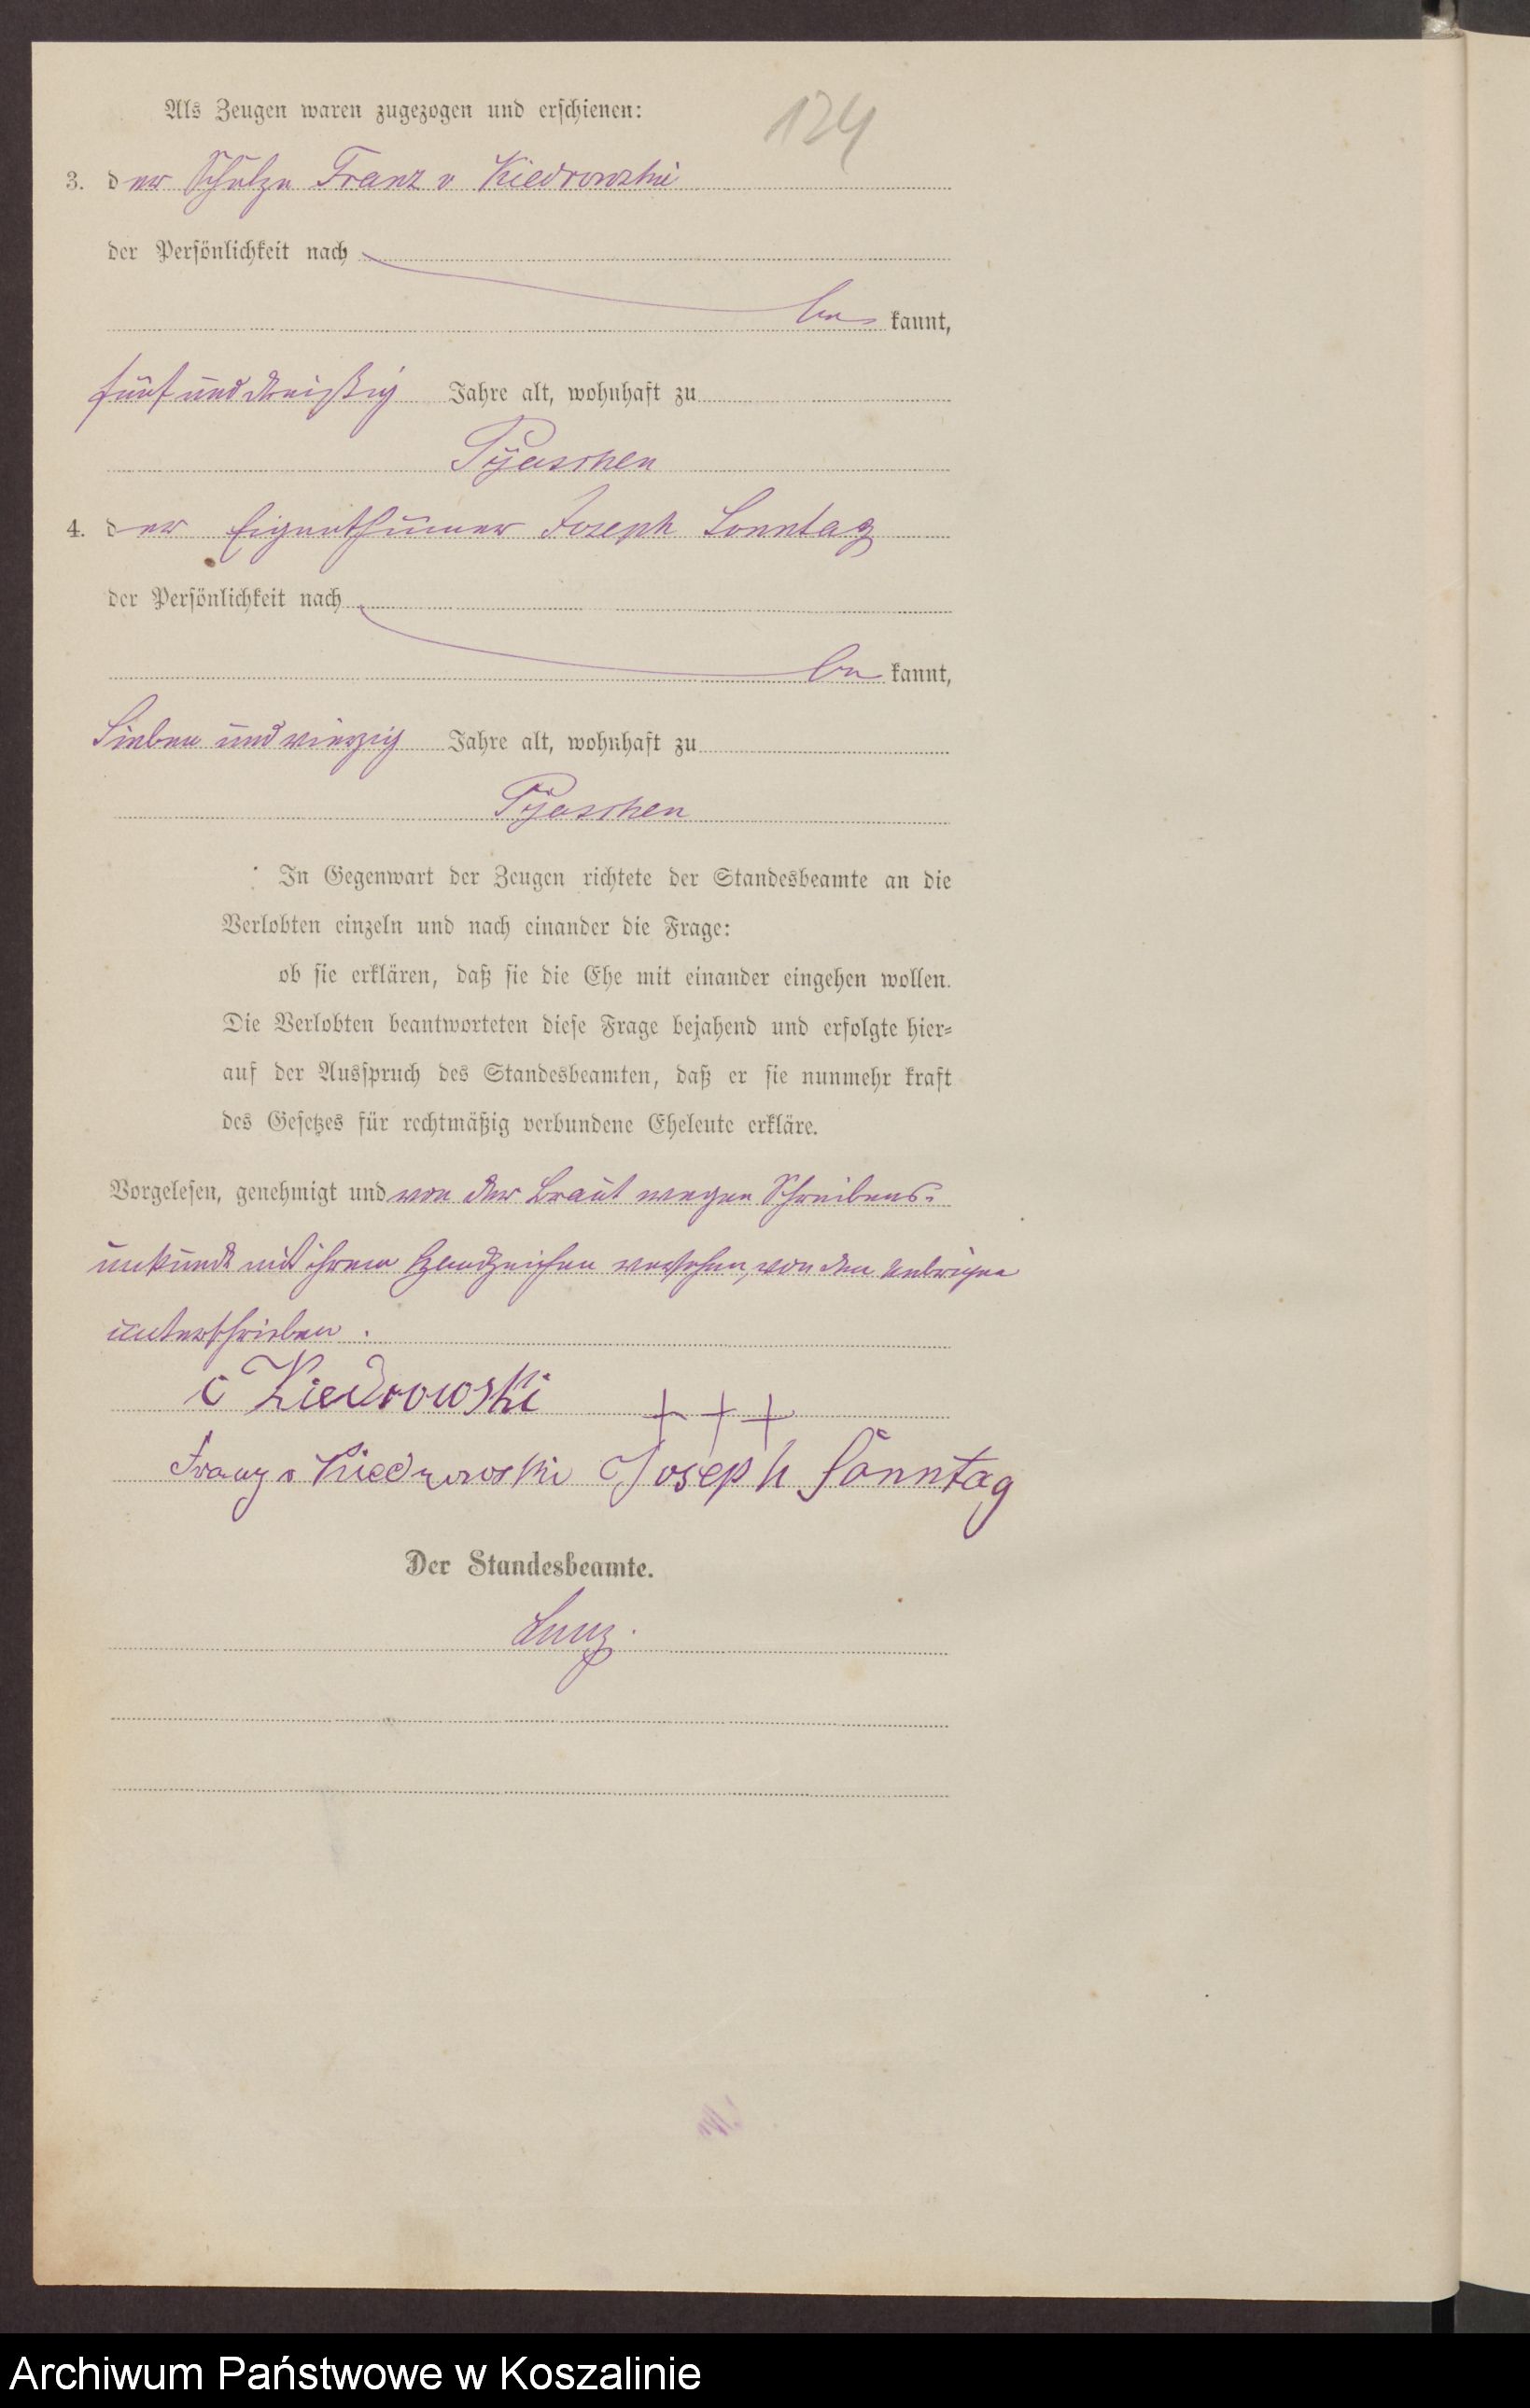 Als Zeugen waren zugezogen und erschienen:
124
3. der Schulze Franz v Kiedrowski
der Persönlichkeit nach
be kannt,
fünf und dreißig Jahre alt, wohnhaft zu
Pyaschen
4. der Eigenthümer Joseph Sonntag
der Persönlichkeit nach
be kannt,
Sieben und vierzig Jahre alt, wohnhaft zu
Pyaschen
In Gegenwart der Zeugen richtete der Standesbeamte an die
Verlobten einzeln und nach einander die Frage:
ob sie erklären, daß sie die Ehe mit einander eingehen wollen.
Die Verlobten beantworteten diese Frage bejahend und erfolgte hier-
auf der Ausspruch des Standesbeamten, daß er sie nunmehr kraft
des Gesetzes für rechtmäßig verbundene Eheleute erkläre.
Vorgelesen, genehmigt und von der Braut wegen Schreibens-
unkunde mit ihrem Handzeichen versehen, von den Uebrigen
unterschrieben.
v Kiedrowski +++
Franz v Kiedrowski Joseph Sonntag
Der Standesbeamte.
Archiwum Państwowe w Koszalinie